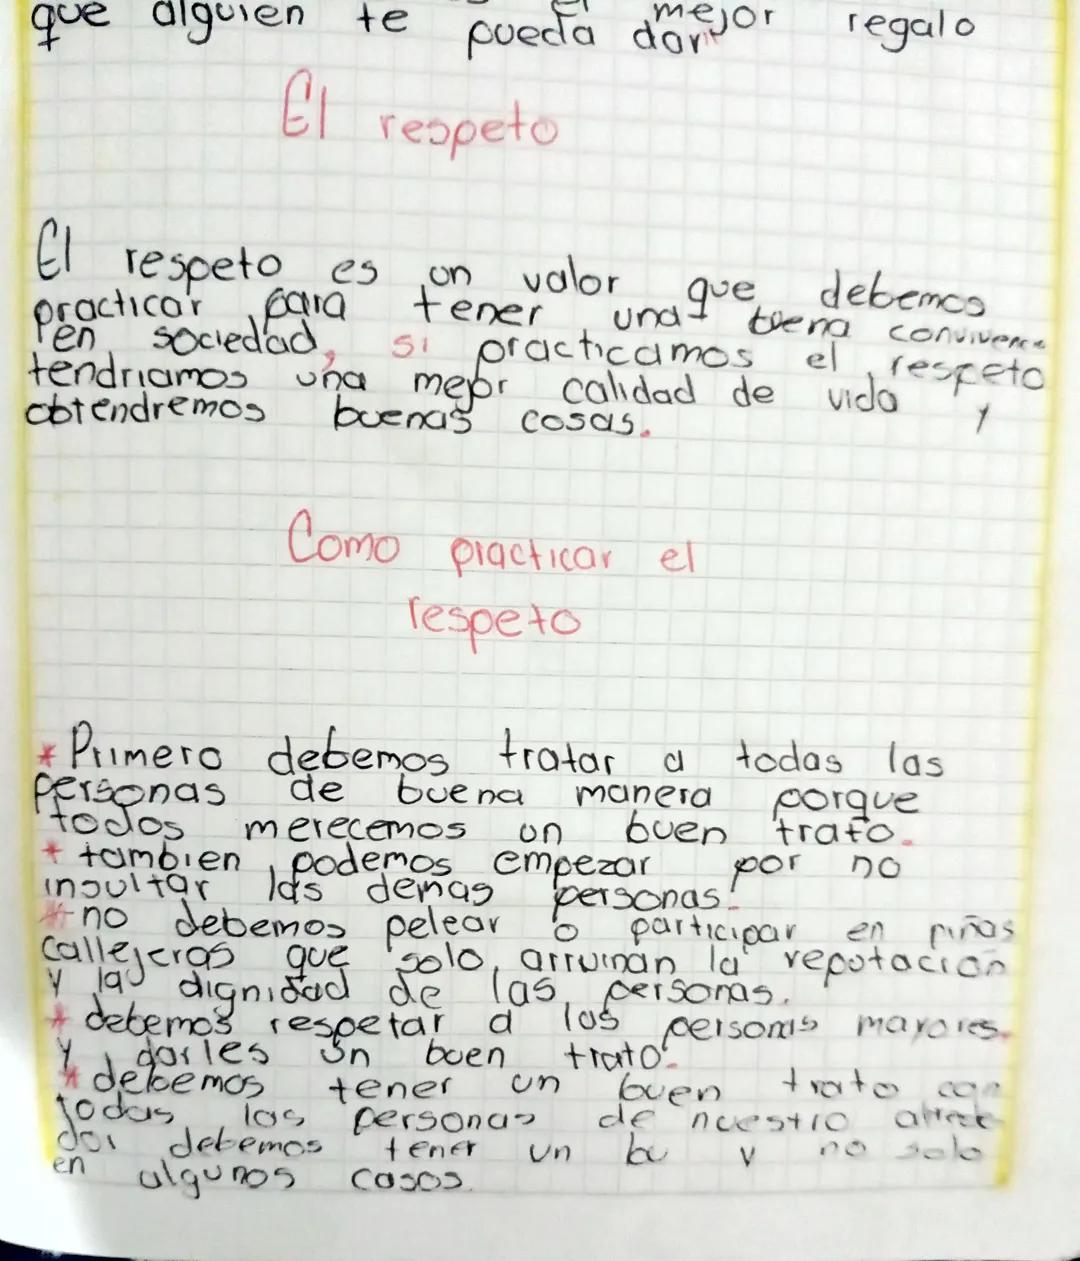 que alguien te pueda dar mejor regalo
El respeto
El respeto es un valor que debemos
practicar para tener una buena convivenc
en sociedad, si practicamos el respeto
tendriamos una mejor calidad de vida y
obtendremos buenas cosas.
Como practicar el
respeto
* Primero debemos tratar a todas las
personas de buena manera porque
todos merecemos un buen trato.
* tambien podemos empezar por no
insultar las demas personas.
* no debemos pelear o participar en piñas
callejeras que solo arruinan la reputacion
y la dignidad de las personas.
* debemos respetar a las personas mayores.
y darles un buen trato.
* debemos tener un buen trato con
todas las personas de nuestro alrede
dor debemos tener un bu y no solo
en algunos casos.